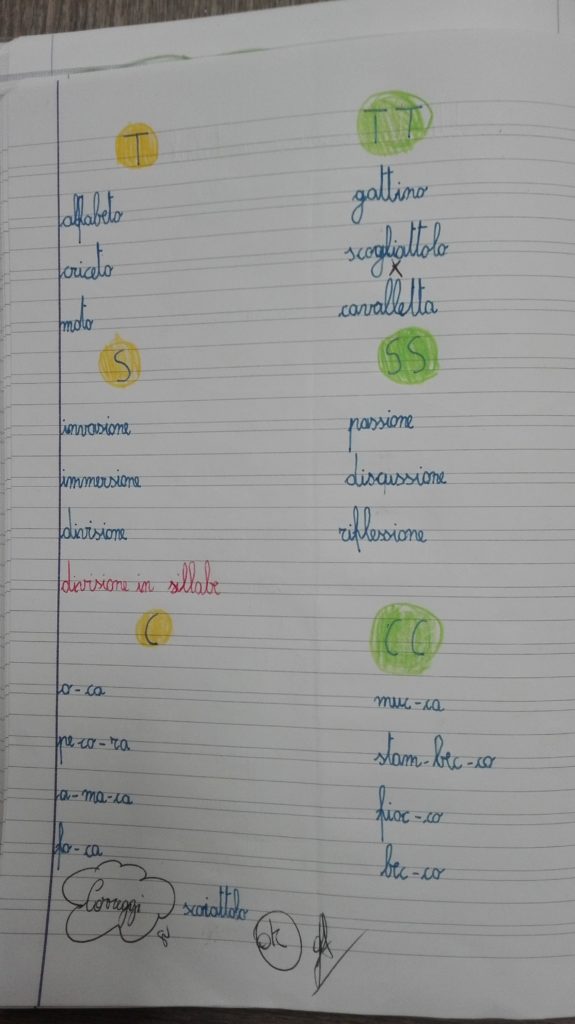 T TT
alfabeto gattino
criceto scogliattolo
x
moto cavalletta
S SS
invasione passione
immersione discussione
divisione riflessione
divisione in sillabe
C CC
o-ca muc-ca
pe-co-ra stam-bec-co
a-ma-ca fioc-co
fo-ca bec-co
Correggi scoiattolo
ok